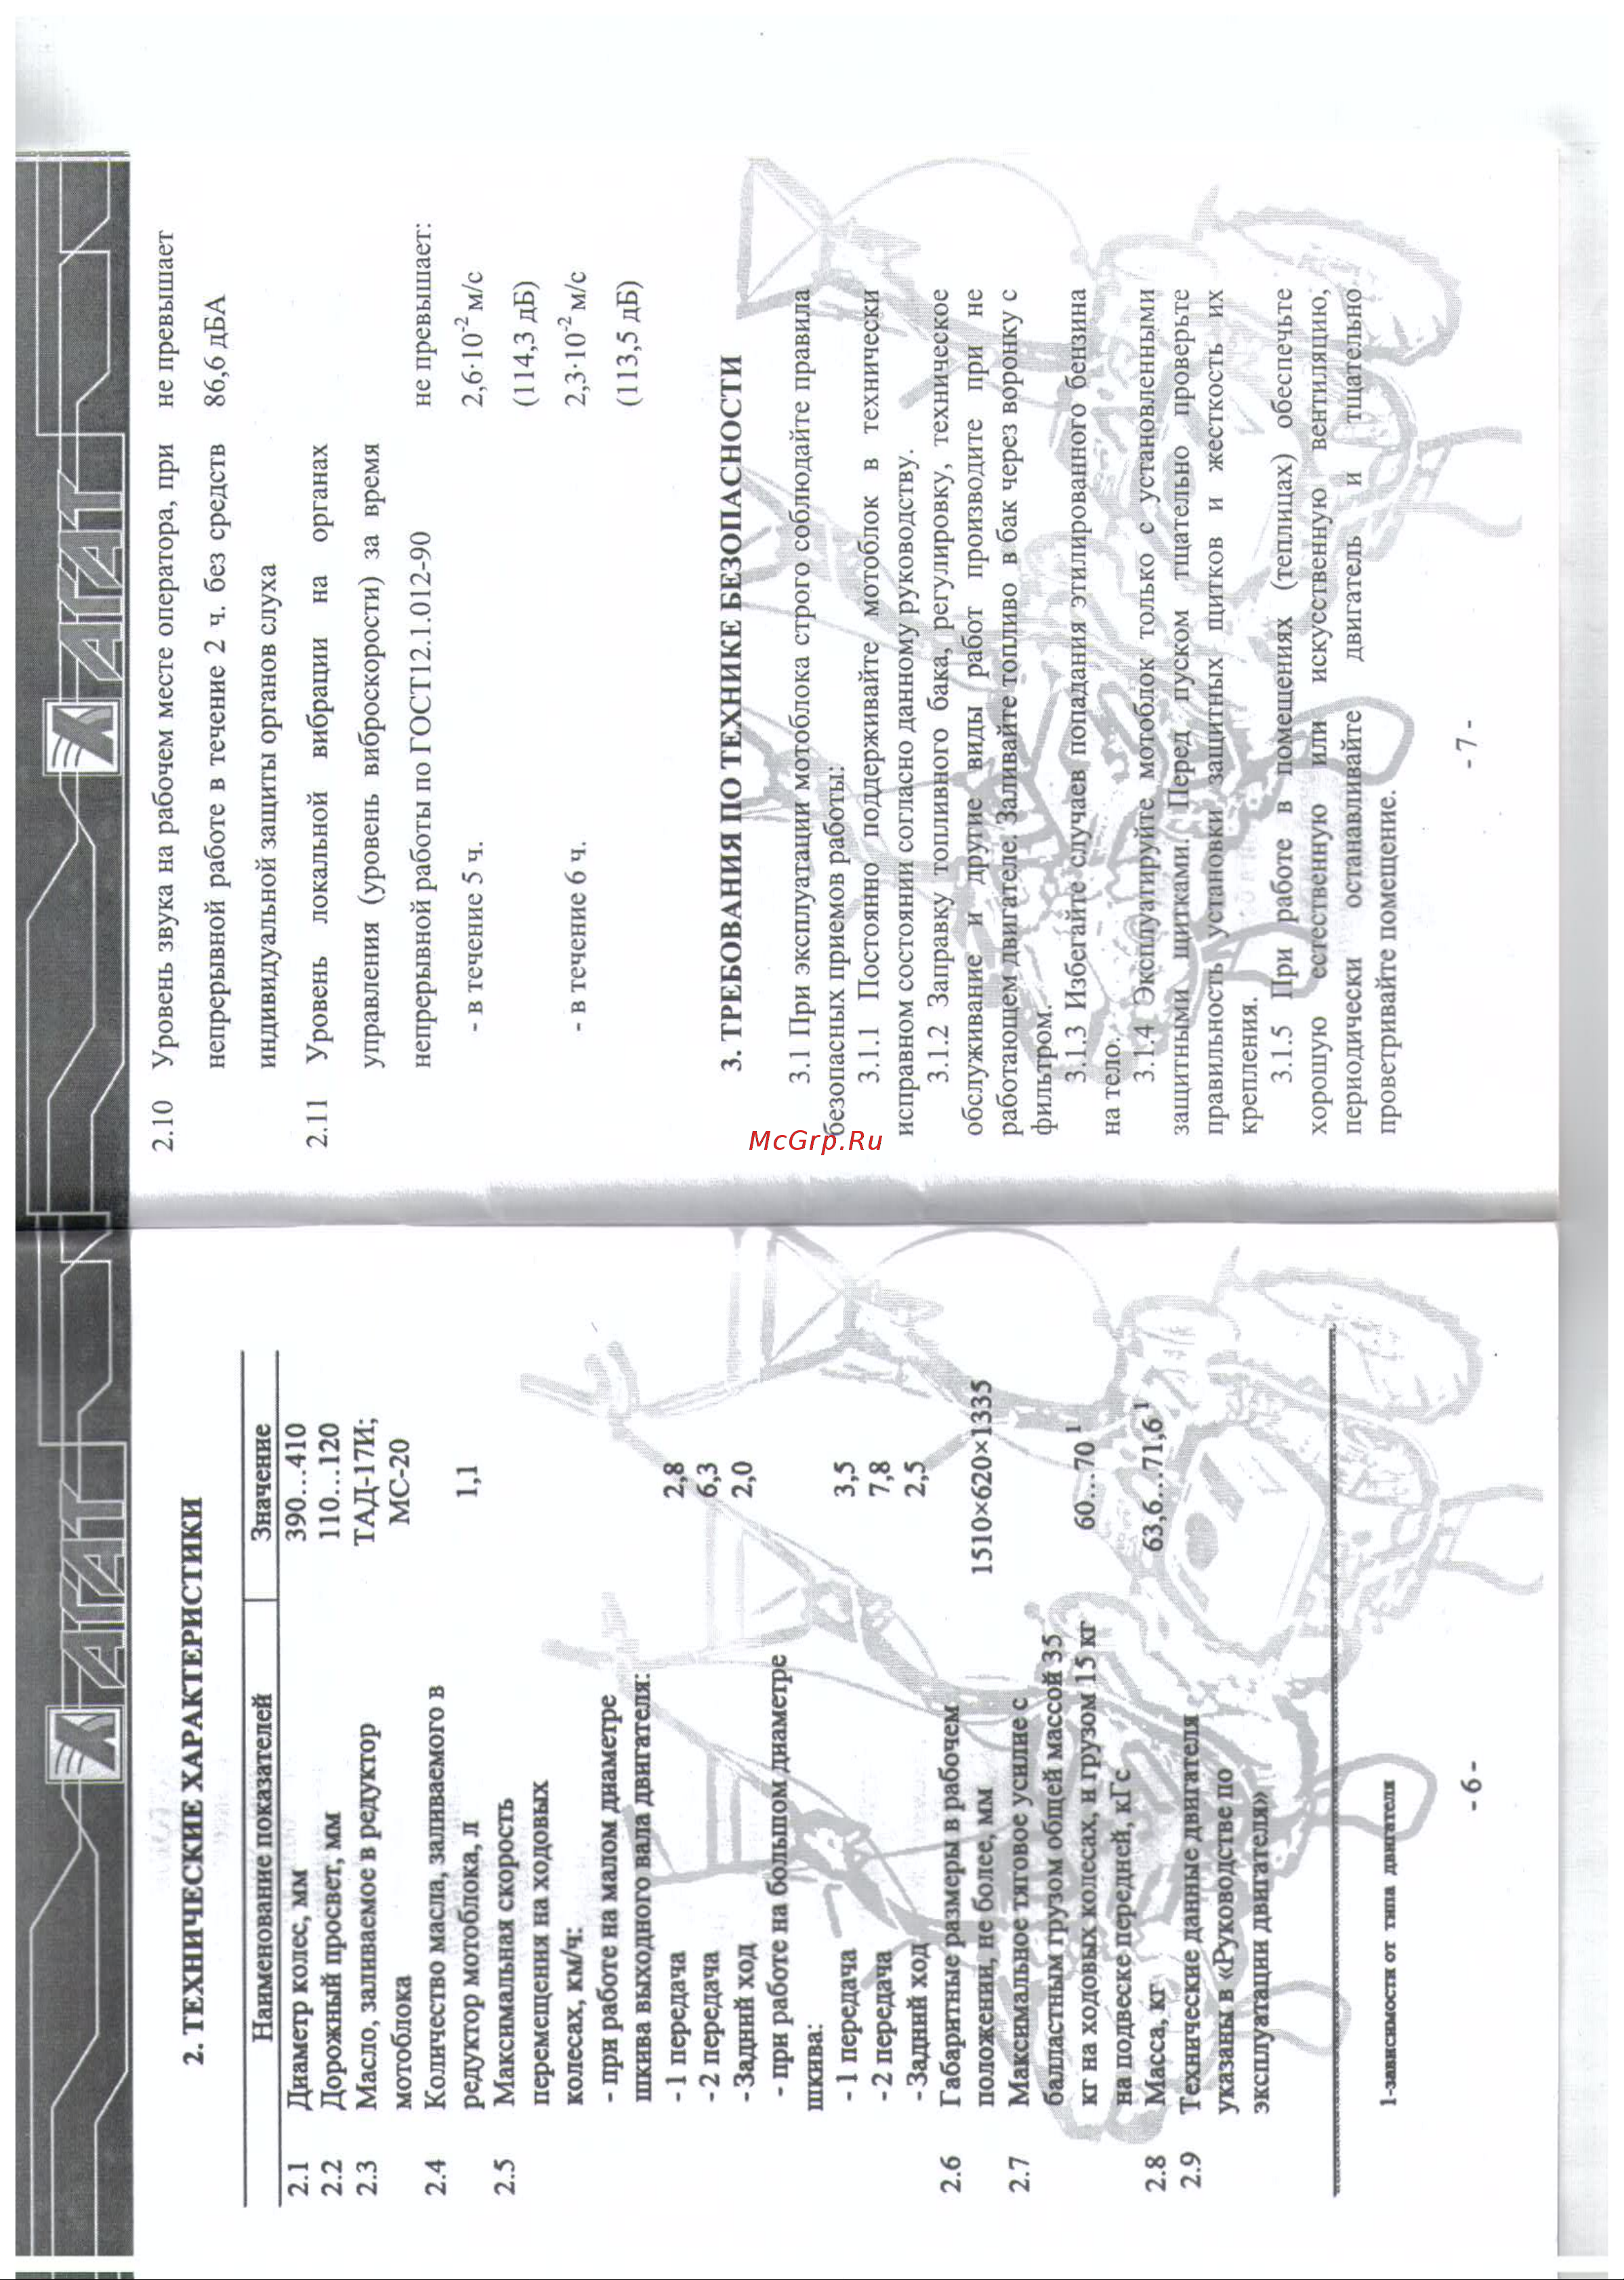 АГАТ
2. ТЕХНИЧЕСКИЕ ХАРАКТЕРИСТИКИ
Наименование показателей Значение
2.1 Диаметр колес, мм 390…410
2.2 Дорожный просвет, мм 110…120
2.3 Масло, заливаемое в редуктор ТАД-17И;
мотоблока МС-20
2.4 Количество масла, заливаемого в
редуктор мотоблока, л 1,1
2.5 Максимальная скорость
перемещения на ходовых
колесах, км/ч:
- при работе на малом диаметре
шкива выходного вала двигателя:
- 1 передача 2,8
- 2 передача 6,3
- Задний ход 2,0
- при работе на большом диаметре
шкива:
- 1 передача 3,5
- 2 передача 7,8
- Задний ход 2,5
2.6 Габаритные размеры в рабочем
положении, не более, мм 1510×620×1335
2.7 Максимальное тяговое усилие с
балластным грузом общей массой 35
кг на ходовых колесах, и грузом 15 кг 60…70 ¹
на подвеске передней, кГс
2.8 Масса, кг 63,6…71,6 ¹
2.9 Технические данные двигателя
указаны в «Руководстве по
эксплуатации двигателя»
1-зависимости от типа двигателя
- 6 -
АГАТ
2.10 Уровень звука на рабочем месте оператора, при не превышает
непрерывной работе в течение 2 ч. без средств 86,6 дБА
индивидуальной защиты органов слуха
2.11 Уровень локальной вибрации на органах
управления (уровень виброскорости) за время
непрерывной работы по ГОСТ12.1.012-90 не превышает:
- в течение 5 ч. 2,6·10⁻² м/с
(114,3 дБ)
- в течение 6 ч. 2,3·10⁻² м/с
(113,5 дБ)
3. ТРЕБОВАНИЯ ПО ТЕХНИКЕ БЕЗОПАСНОСТИ
3.1 При эксплуатации мотоблока строго соблюдайте правила
безопасных приемов работы:
3.1.1 Постоянно поддерживайте мотоблок в технически
исправном состоянии согласно данному руководству.
3.1.2 Заправку топливного бака, регулировку, техническое
обслуживание и другие виды работ производите при не
работающем двигателе. Заливайте топливо в бак через воронку с
фильтром.
3.1.3 Избегайте случаев попадания этилированного бензина
на тело.
3.1.4 Эксплуатируйте мотоблок только с установленными
защитными щитками. Перед пуском тщательно проверьте
правильность установки защитных щитков и жесткость их
крепления.
3.1.5 При работе в помещениях (теплицах) обеспечьте
хорошую естественную или искусственную вентиляцию,
периодически останавливайте двигатель и тщательно
проветривайте помещение.
- 7 -
McGrp.Ru